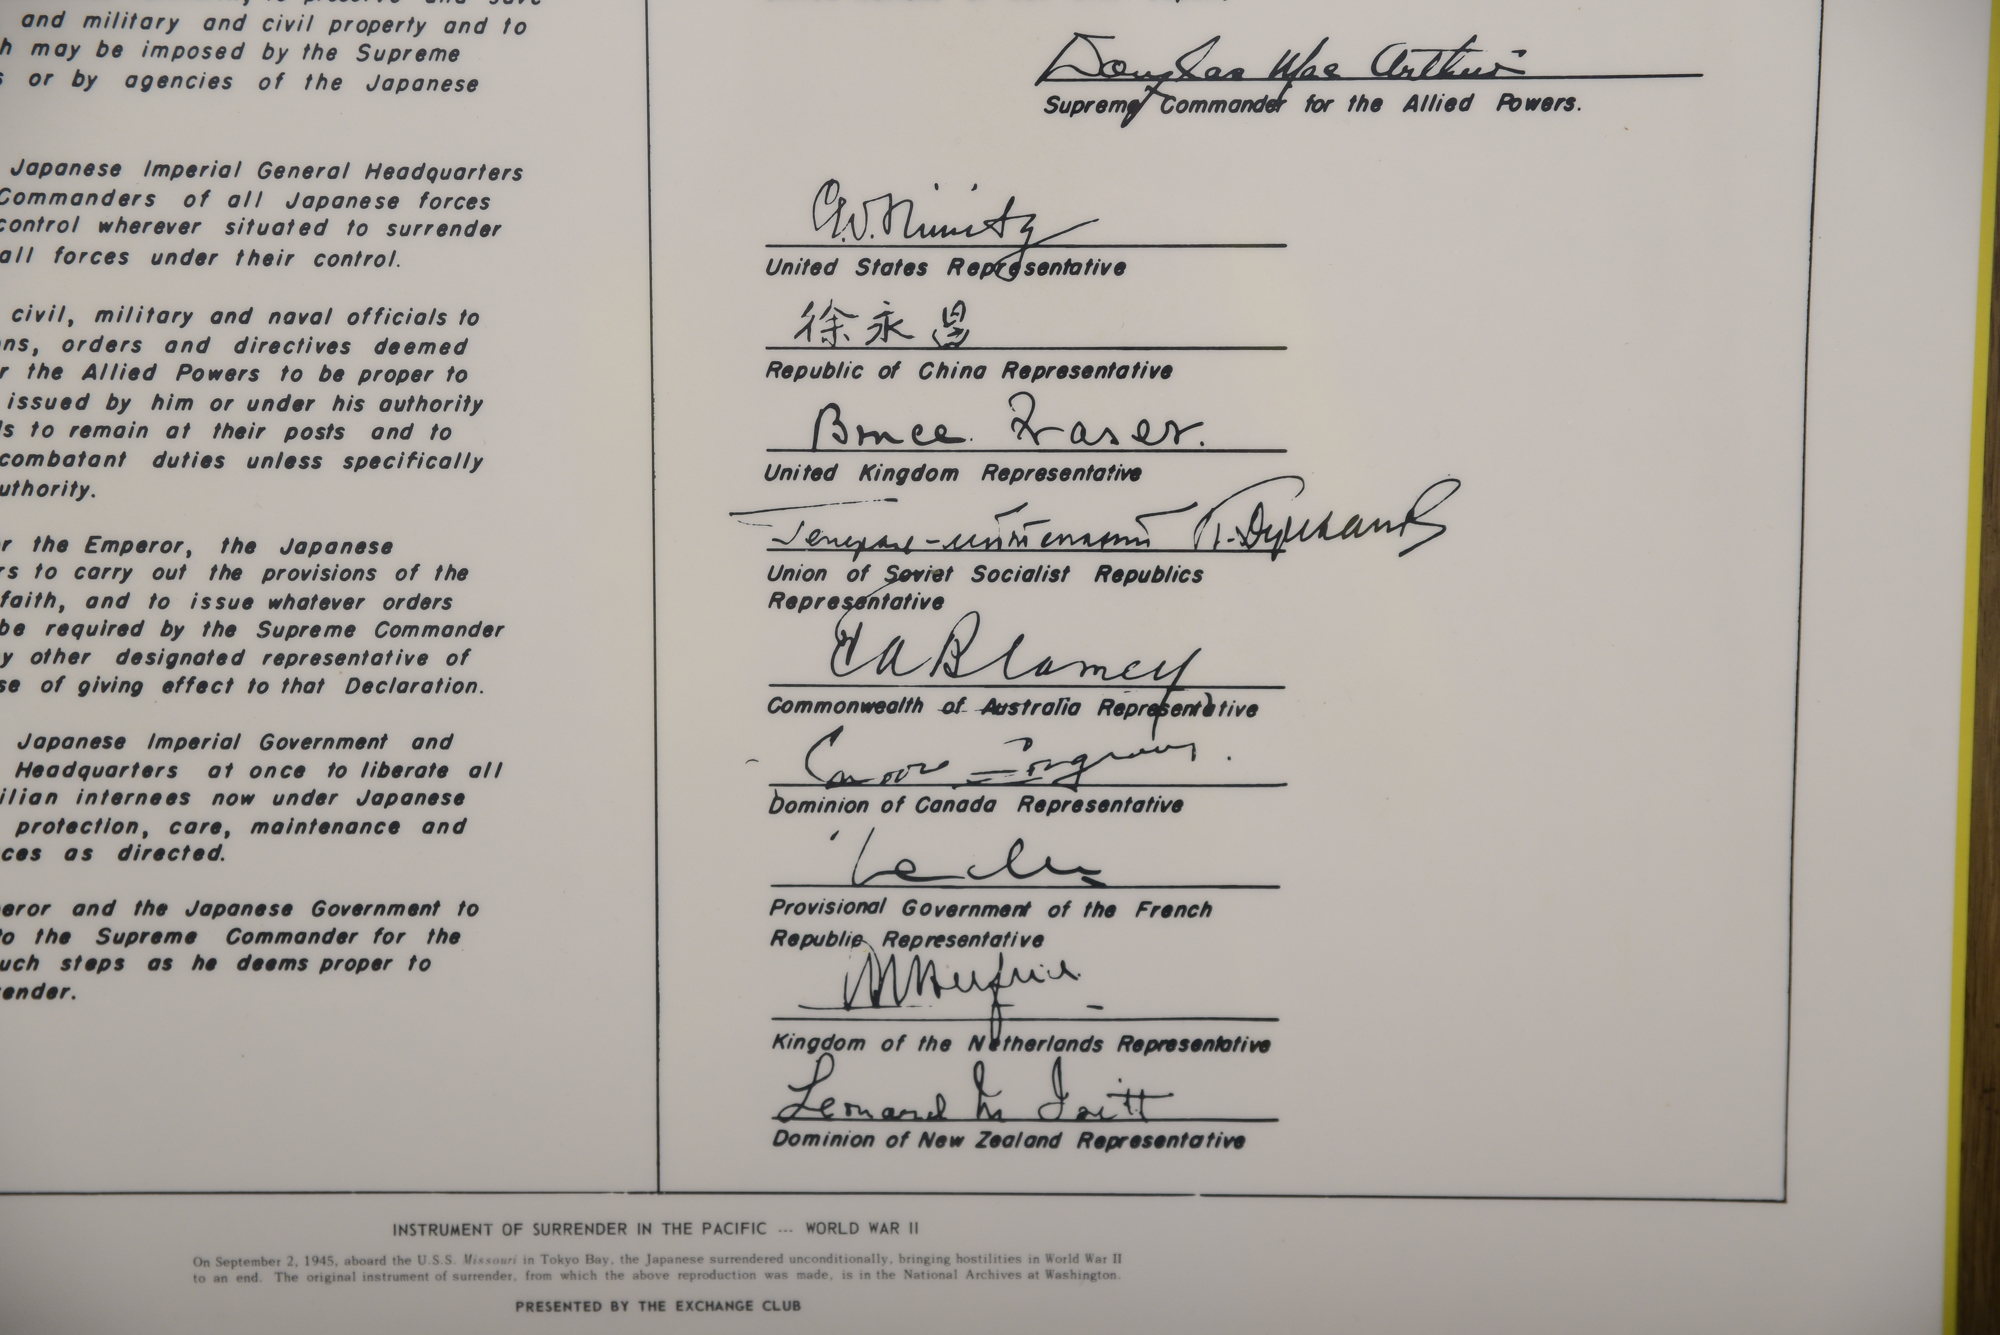 and military and civil property and to
may be imposed by the Supreme
or by agencies of the Japanese
Japanese Imperial General Headquarters
Commanders of all Japanese forces
control wherever situated to surrender
all forces under their control.
civil, military and naval officials to
orders and directives deemed
the Allied Powers to be proper to
issued by him or under his authority
to remain at their posts and to
combatant duties unless specifically
the Emperor, the Japanese
to carry out the provisions of the
faith, and to issue whatever orders
be required by the Supreme Commander
other designated representative of
of giving effect to that Declaration.
Japanese Imperial Government and
Headquarters at once to liberate all
internees now under Japanese
protection, care, maintenance and
as directed.
and the Japanese Government to
to the Supreme Commander for the
steps as he deems proper to
Douglas MacArthur
Supreme Commander for the Allied Powers.
C.W. Nimitz
United States Representative
徐永昌
Republic of China Representative
Bruce Fraser.
United Kingdom Representative
Генерал-лейтенант
Union of Soviet Socialist Republics
Representative
T A Blamey
Commonwealth of Australia Representative
Dominion of Canada Representative
Provisional Government of the French
Republic Representative
Kingdom of the Netherlands Representative
Leonard M Isitt
Dominion of New Zealand Representative
INSTRUMENT OF SURRENDER IN THE PACIFIC --- WORLD WAR II
On September 2, 1945, aboard the U.S.S. Missouri in Tokyo Bay, the Japanese surrendered unconditionally, bringing hostilities in World War II
to an end. The original instrument of surrender, from which the above reproduction was made, is in the National Archives at Washington.
PRESENTED BY THE EXCHANGE CLUB